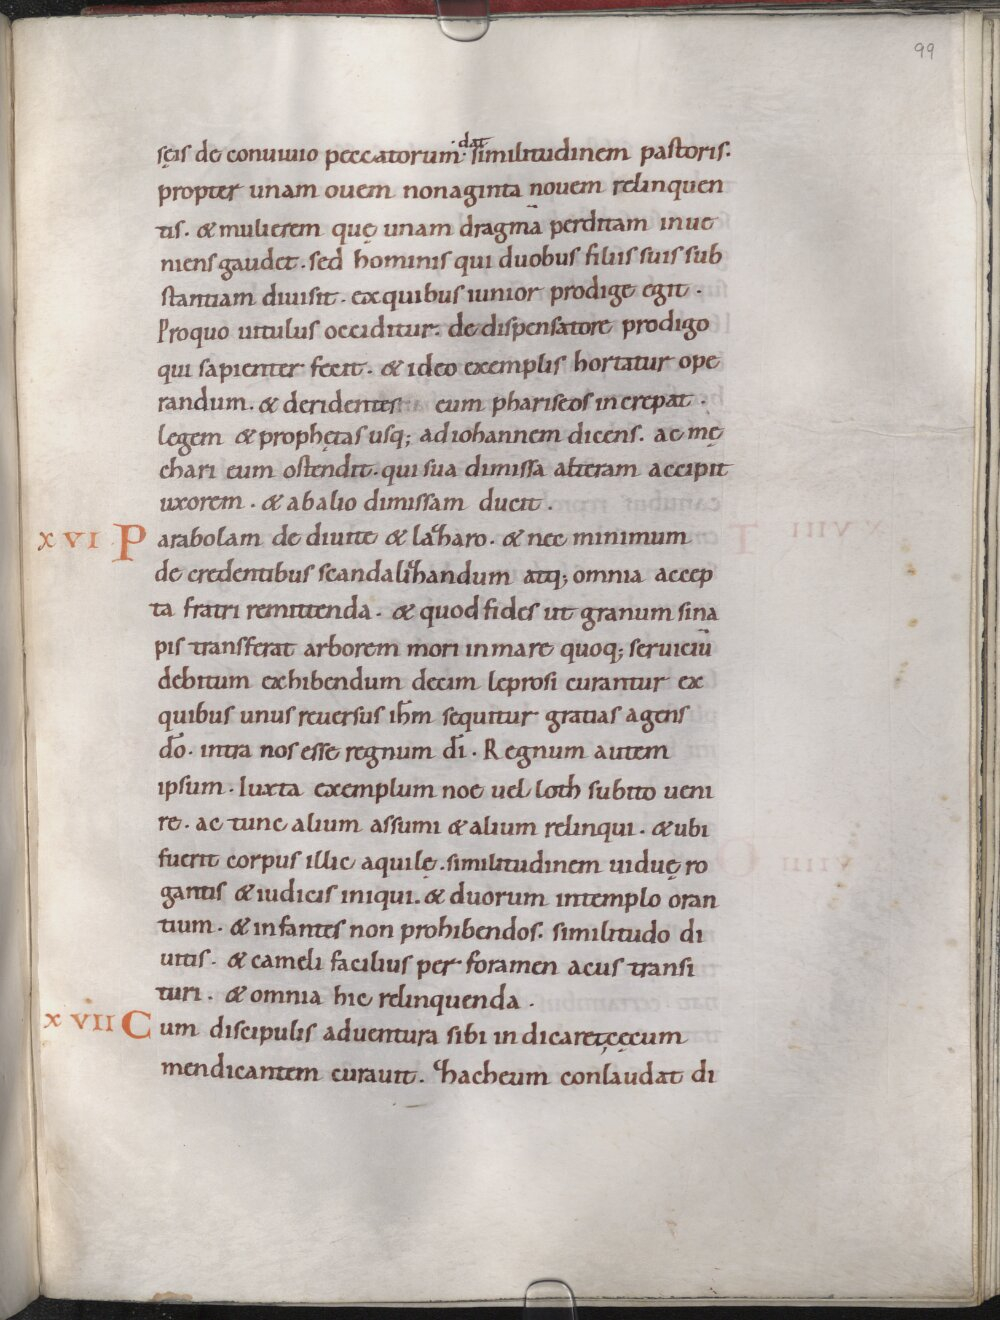 99
sęis de conuiuio peccatorum. dat similitudinem pastoris.
propter unam ouem nonaginta nouem relinquen
tis. & mulierem quę unam dragmā perditam inue
niens gaudet. sed hominis qui duobus filiis suis sub
stantiam diuisit. ex quibus iunior prodige egit.
Pro quo uitulus occiditur. de dispensatore prodigo
qui sapienter fecit. & ideo exemplis hortatur ope
randum. & deridentes eum phariseos increpat.
legem & prophetas usq; ad iohannem dicens. ac mę
chari eum ostendit. qui sua dimissa alteram accipit
uxorem. & ab alio dimissam ducit.
XVI Parabolam de diuite & lazharo. & nec minimum
de credentibus scandalizhandum atq; omnia accep
ta fratri remittenda. & quod fides ut granum sina
pis transferat arborem mori in mare quoq; seruiciū
debitum exhibendum decim leprosi curantur ex
quibus unus reuersus ihm̄ sequitur gratias agens
dō. intra nos esse regnum dī. Regnum autem
ipsum. Iuxta exemplum noe uel loth subito ueni
re. ac tunc alium assumi & alium relinqui. & ubi
fuerit corpus illic aquilę. similitudinem uiduę ro
gantis & iudicis iniqui. & duorum in templo oran
tium. & infantes non prohibendos. similitudo di
uitis. & cameli facilius per foramen acus transi
turi. & omnia hic relinquenda.
XVII Cum discipulis aduentura sibi indicaret cęcum
mendicantem curauit. zhacheum conlaudat di